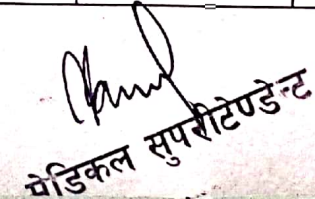 मेडिकल सुपरीटेण्डेन्ट